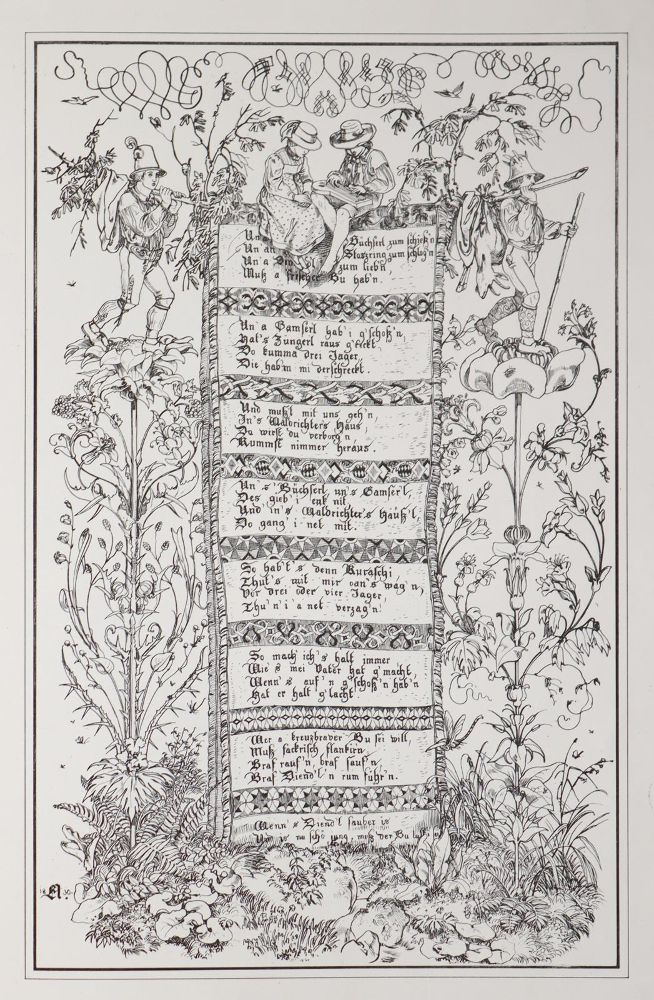 Un a Büchserl zum schieß'n
Un an Stoßzring zum schlog'n
Un'a Dien zum lieb'n
Muß a frischer Bu hab'n.
Un'a Gamserl hab' i g'schoß'n,
Hat's Zungerl raus g'reckt,
Do kumma drei Jager,
Die hab'm mi derschreckt.
Und mußt mit uns geh'n,
In's Waldrichters Haus,
Da wirst du verborg'n
Kummst nimmer heraus.
Un 's Büchserl, un's Gamserl,
Des gieb' i enk nit,
Und in's Waldrichter's Häuß'l
Do gang' i net mit.
So hab't's denn Kuraschi
Thut's mit mir oan's wag'n,
Vor drei oder vier Jager
Thu'n i a net verzag'n!
So mach ich's halt immer
Wie's mei Vater hat g'macht,
Wenn's auf'n g'schoß'n hab'n
Hat er halt g'lacht.
Wer a kreuzbraver Bu sei will,
Muß sackrisch flankirn,
Braf rauf'n, braf sauf'n,
Braf Diend'l'n rum führ'n.
Wenn's Diend'l sauber is
Un is no scho jung, muß der Bu